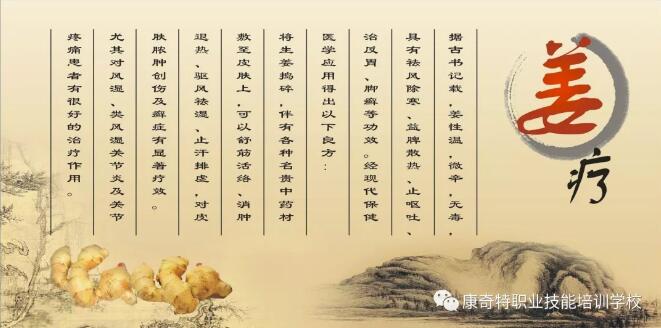 姜
疗
据古书记载,姜性温,微辛,无毒,
具有祛风除寒、益脾散热、止呕吐、
治反胃、脚癣等功效。经现代保健
医学应用得出以下良方:
将生姜捣碎,伴有各种名贵中药材
敷至皮肤上,可以舒筋活络、消肿
退热、驱风祛湿、止汗排虚,对皮
肤脓肿创伤及癣症有显著疗效。
尤其对风湿、类风湿关节炎及关节
疼痛患者有很好的治疗作用。
康奇特职业技能培训学校